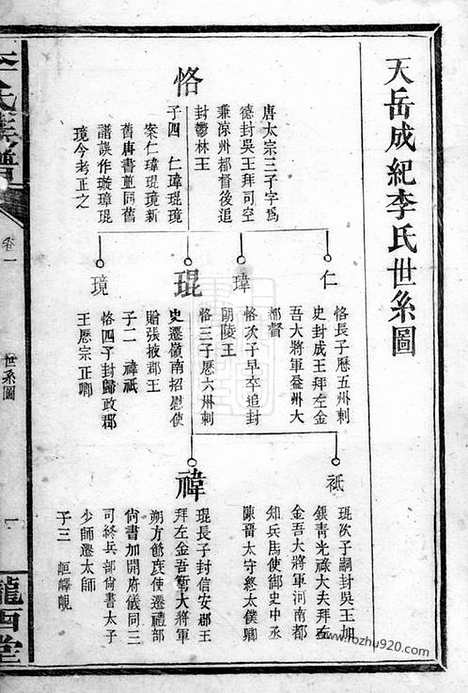 天岳成紀李氏世系圖
恪
唐太宗三子字為
德封吳王拜司空
兼涼州都督後追
封鬱林王
子四 仁瑋琨璄
案仁瑋琨璄新
舊唐書並同舊
譜誤作璇璋琨
璄今考正之
仁
恪長子歷五州刺
史封成王拜左金
吾大將軍益州大
都督
瑋
恪次子早卒追封
朗陵王
琨
恪三子歷六州刺
史遷嶺南招慰使
贈張掖郡王
子二 禕祇
璄
恪四子封歸政郡
王歷宗正卿
祇
琨次子嗣封吳王加
銀青光祿大夫拜左
金吾大將軍河南都
知兵馬使御史中丞
陳晉太守終太僕卿
禕
琨長子封信安郡王
拜左金吾衛大將軍
朔方節度使遷禮部
尚書加開府儀同三
司終兵部尚書太子
少師遷太師
子三 峘嶧峴
李氏族譜
卷一
世系圖
一
隴西堂
www.fozhu920.com